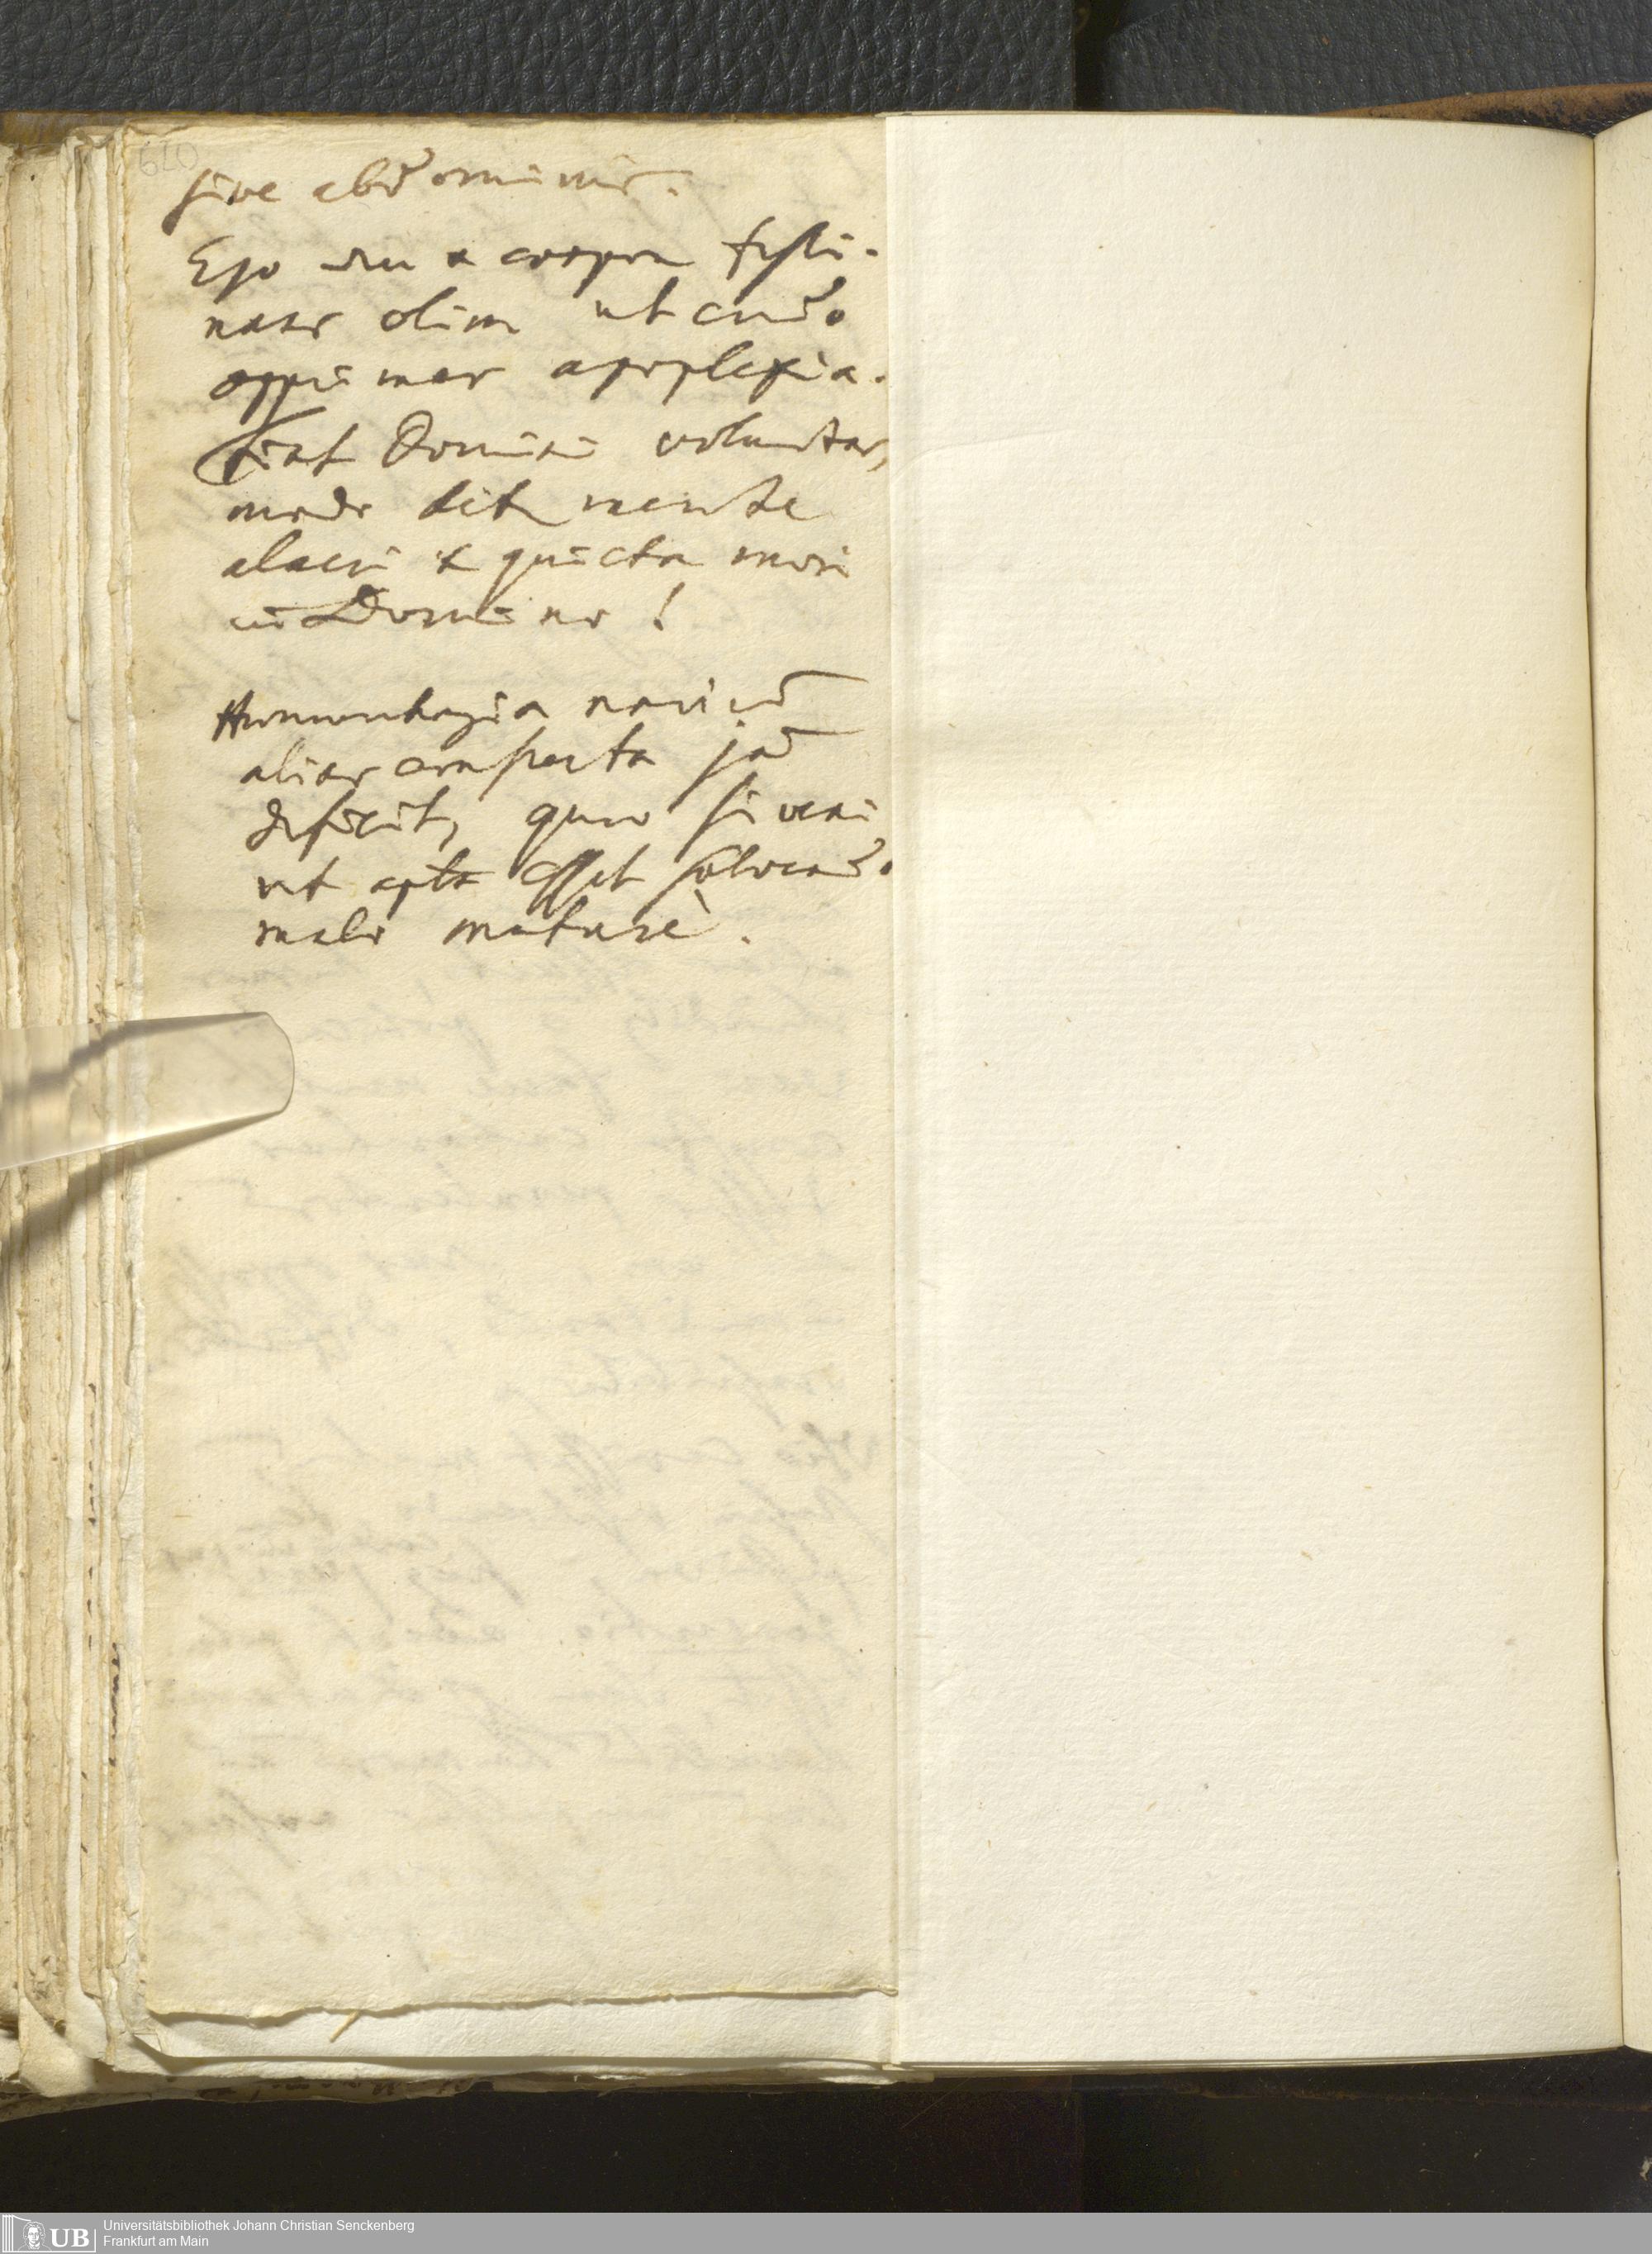 620
sive abdominis.
Ego
nans olim ut credo
opprimar apoplexia.
Fiat Domini voluntas,
modo sit mente
alacri & quieta mori
in Domino!
Haemorrhagia nariū
alias consueta jā
deficit, quae si veni
ret apta esset solvendo
malo maturè.
UB
Universitätsbibliothek Johann Christian Senckenberg
Frankfurt am Main